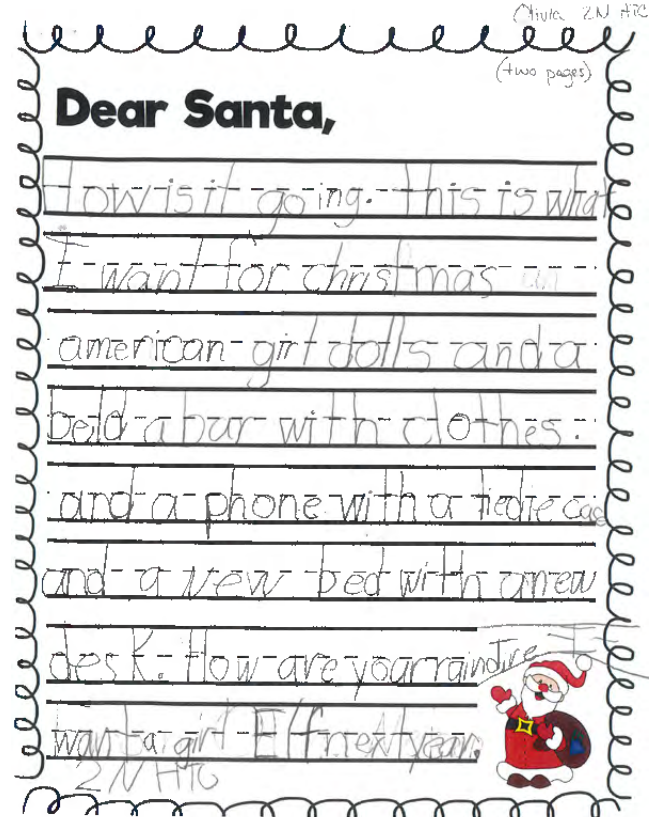 Olivia 2N HTC
(two pages)
Dear Santa,
How is it going. this is what
I want for christmas an
american girl dolls and a
beld a bur with clothes.
and a phone with a tiedie case
and a new bed with a new
desk. How are your raindire I
want a girl Elf next year.
2N HTC